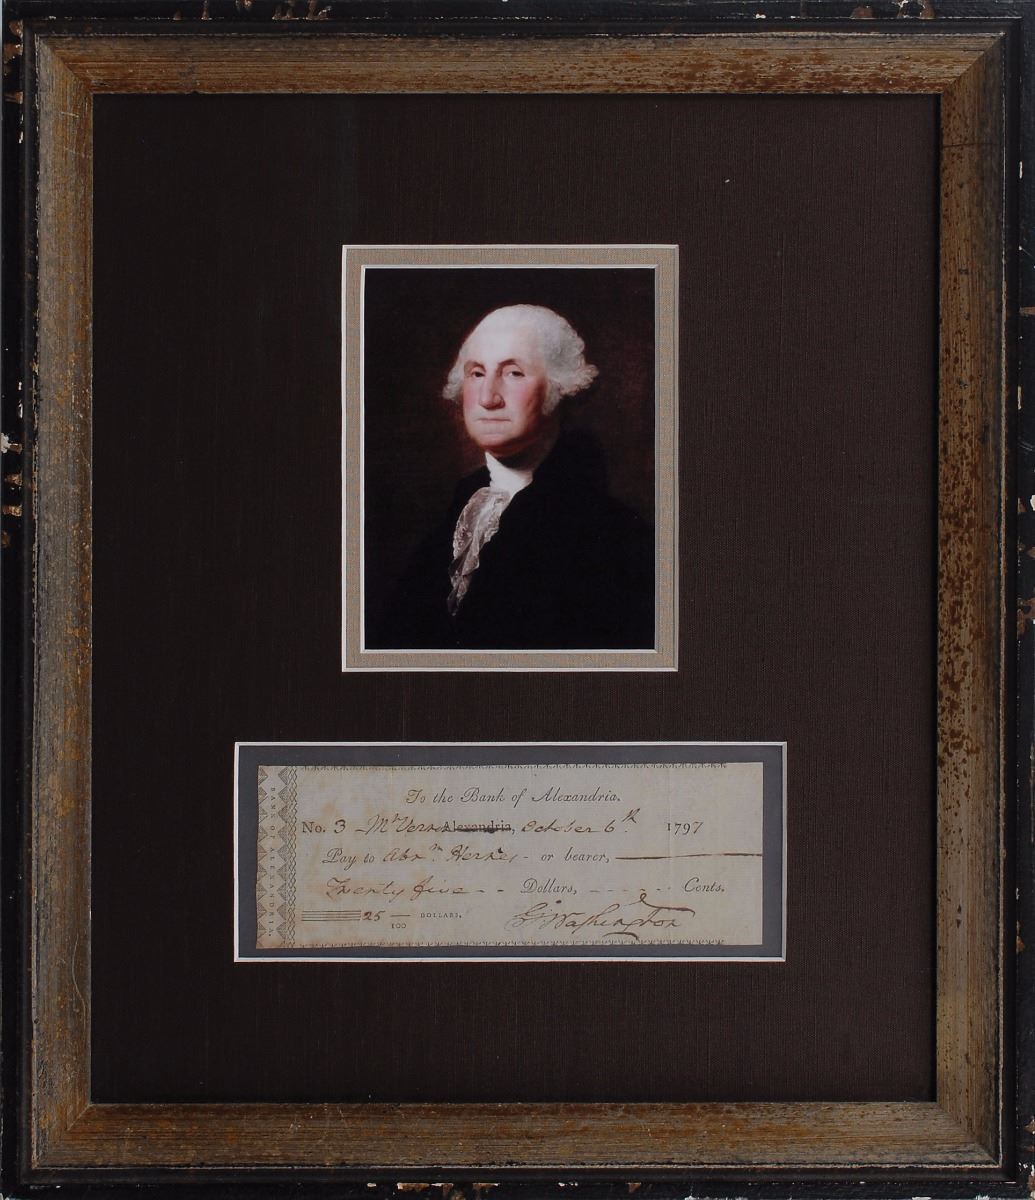 To the Bank of Alexandria.
No. 3 Mt Vernon Alexandria, October 6th 1797
Pay to Abrm or bearer,
Twenty five Dollars, Cents.
25/100 DOLLARS,
G Washington
BANK OF ALEXANDRIA.